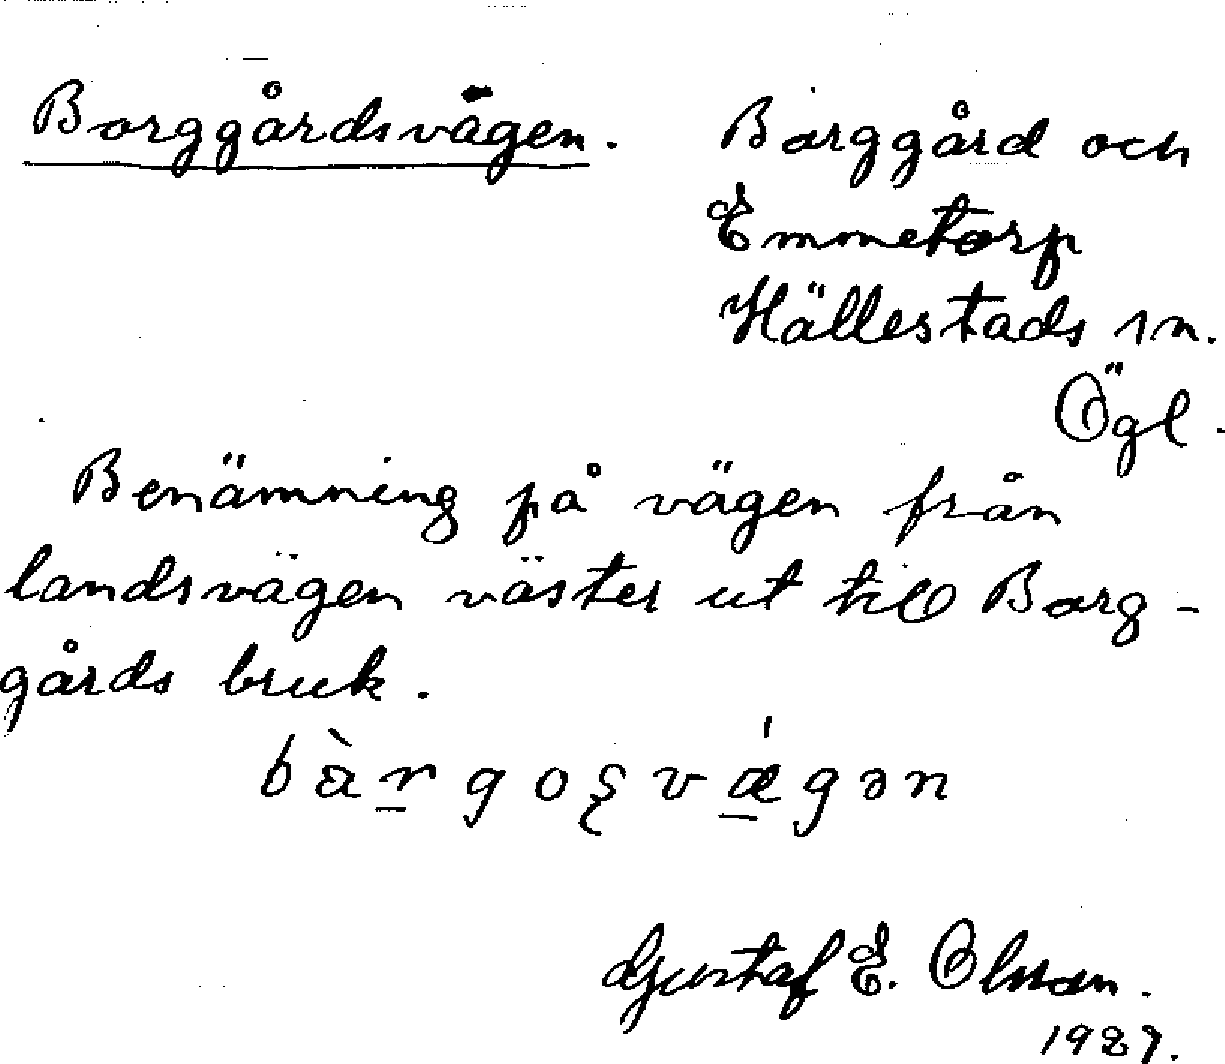 Borggårdsvägen. Borggård och
Emmetorp
Hällestads sn.
Ögl.
Benämning på vägen från
landsvägen väster ut till Borg-
gårds bruk.
Gustaf E. Olsson.
1927.